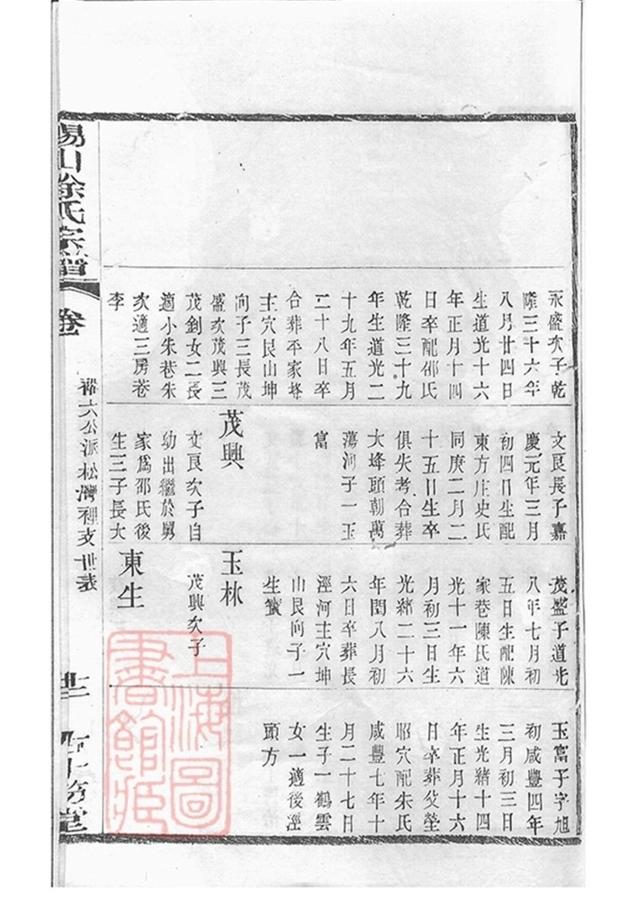 永盛次子乾
隆三十六年
八月廿四日
生道光十六
年正月十四
日卒配邵氏
乾隆三十九
年生道光二
十九年五月
二十八日卒
合葬平家塝
主穴艮山坤
向子三長茂
盛次茂興三
茂釗女二長
適小朱巷朱
次適三房巷
李
文良長子嘉
慶元年三月
初四日生配
東方庄史氏
同庚二月二
十五日生卒
俱失考合葬
大峰頭朝萬
蕩河子一玉
富
茂興
文良次子自
幼出繼於舅
家為邵氏後
生三子長大
茂盛子道光
八年七月初
五日生配陳
家巷陳氏道
光十一年六
月初三日生
光緒二十六
年閏八月初
六日卒葬長
涇河主穴坤
山艮向子一
生寶
玉林
茂興次子
東生
玉富子字旭
初咸豐四年
三月初三日
生光緒十四
年正月十六
日卒葬父塋
昭穴配朱氏
咸豐七年十
月二十七日
生子一鶴雲
女一適後涇
頭方
錫山徐氏宗譜
卷
裕六公派松灣裡支世表
上海圖
書館藏